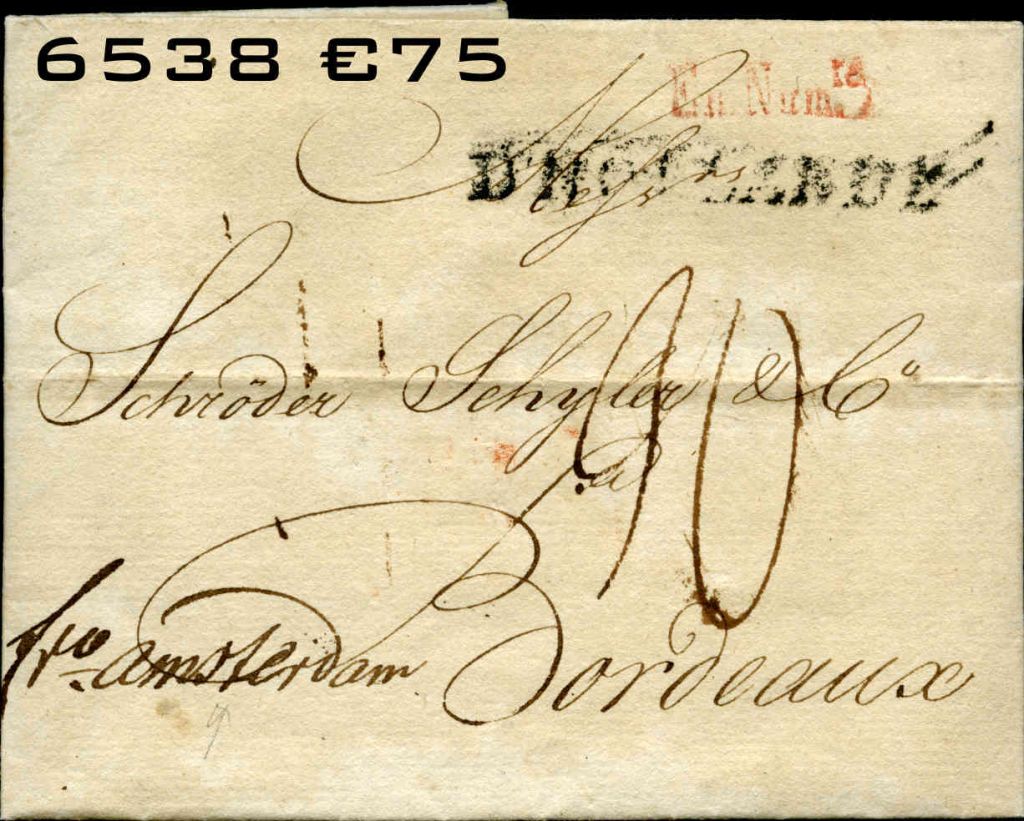 6538 €75
En Num.re
D'HOLLANDE
Mess.rs
Schröder Schyler & C.o
90
a
Bordeaux
fro amsterdam